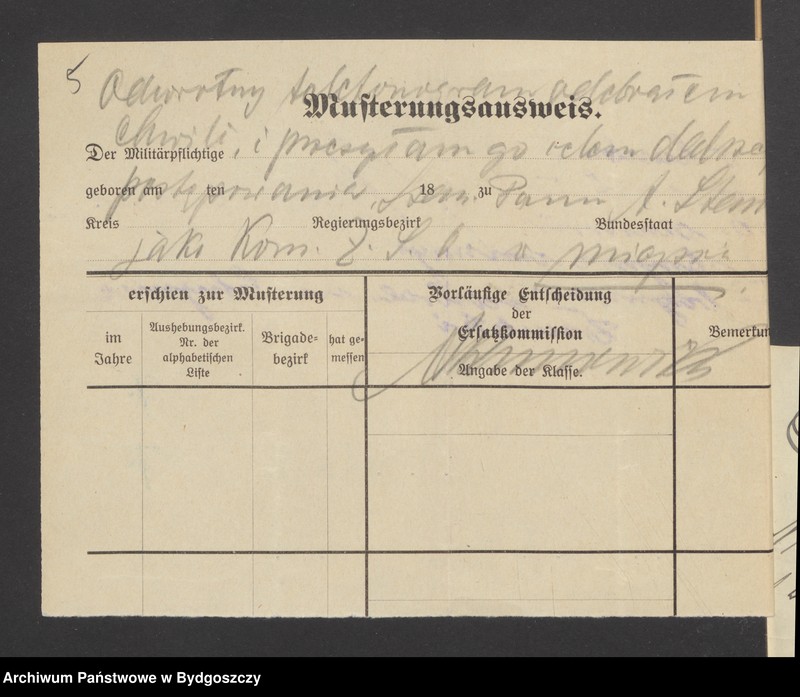 5
Odwrotny telefonogram odebrałem
Musterungsausweis.
chwili, i przesyłam go celem dalszego
Der Militärpflichtige
postępowania
geboren am ten 18 zu
Pann A.
Kreis Regierungsbezirk Bundesstaat
jako Kom. miejsc
erschien zur Musterung
Vorläufige Entscheidung
der
Ersatzkommission
Angabe der Klasse.
im
Jahre
Aushebungsbezirk.
Nr. der
alphabetischen
Liste
Brigade-
bezirk
hat ge-
messen
Bemerkun
Archiwum Państwowe w Bydgoszczy